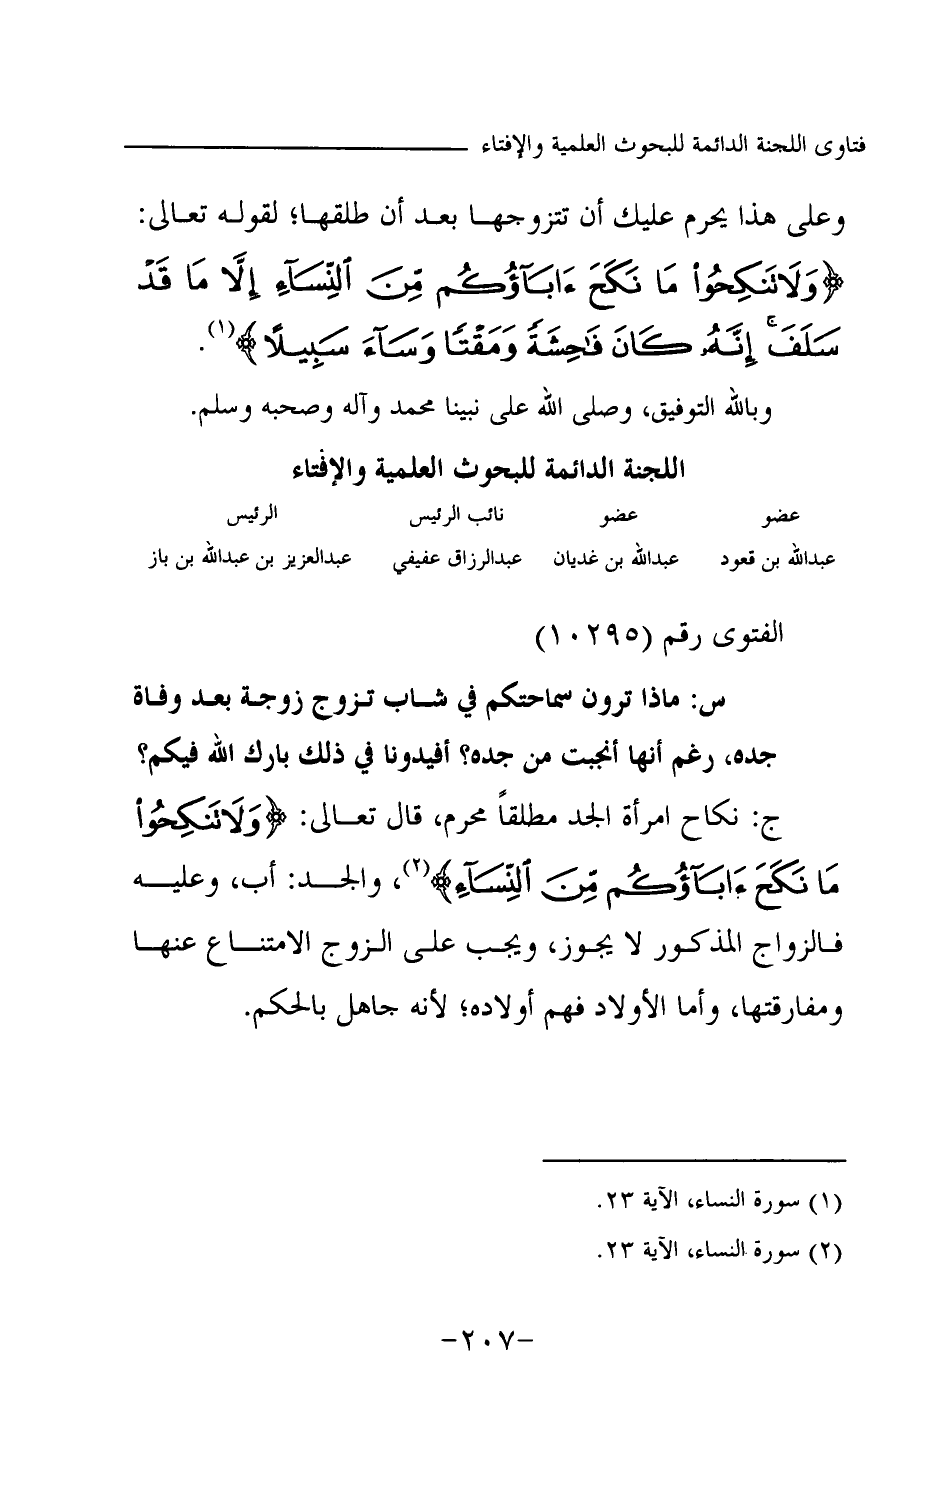 فتاوى اللجنة الدائمة للبحوث العلمية والإفتاء
وعلى هذا يحرم عليك أن تتزوجها بعد أن طلقها؛ لقوله تعالى:
﴿وَلَا تَنكِحُوا۟ مَا نَكَحَ ءَابَآؤُكُم مِّنَ ٱلنِّسَآءِ إِلَّا مَا قَدْ
سَلَفَ ۚ إِنَّهُۥ كَانَ فَـٰحِشَةً وَمَقْتًا وَسَآءَ سَبِيلًا﴾(١).
وبالله التوفيق، وصلى الله على نبينا محمد وآله وصحبه وسلم.
اللجنة الدائمة للبحوث العلمية والإفتاء
عضو عضو نائب الرئيس الرئيس
عبدالله بن قعود عبدالله بن غديان عبدالرزاق عفيفي عبدالعزيز بن عبدالله بن باز
الفتوى رقم (١٠٢٩٥)
س: ماذا ترون سماحتكم في شاب تزوج زوجة بعد وفاة
جده، رغم أنها أنجبت من جده؟ أفيدونا في ذلك بارك الله فيكم؟
ج: نكاح امرأة الجد مطلقاً محرم، قال تعالى: ﴿وَلَا تَنكِحُوا۟
مَا نَكَحَ ءَابَآؤُكُم مِّنَ ٱلنِّسَآءِ﴾(٢)، والجد: أب، وعليه
فالزواج المذكور لا يجوز، ويجب على الزوج الامتناع عنها
ومفارقتها، وأما الأولاد فهم أولاده؛ لأنه جاهل بالحكم.
(١) سورة النساء، الآية ٢٣.
(٢) سورة النساء، الآية ٢٣.
-٢٠٧-